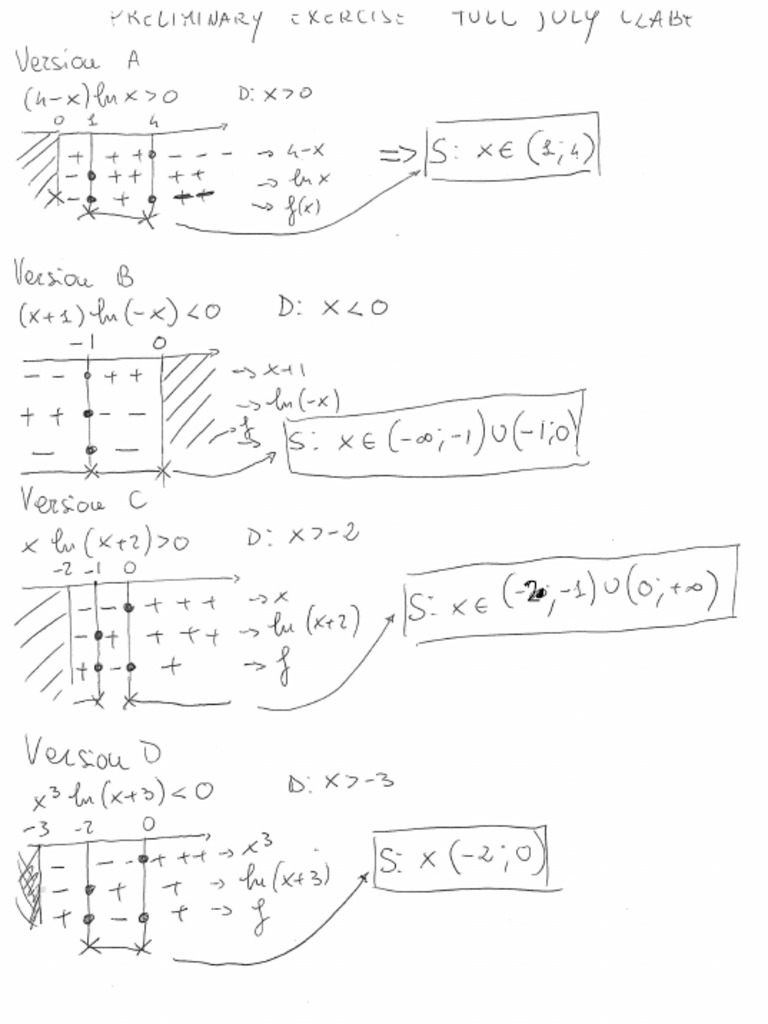 PRELIMINARY EXERCISE JULY
Version A
(4-x) ln x > 0 D: x > 0
0 1 4
+ + + - - - → 4-x
- + + + + → ln x
- + → f(x)
=> S: x ∈ (1; 4)
Version B
(x+1) ln(-x) < 0 D: x < 0
-1 0
- - + + → x+1
+ + - - → ln(-x)
- - → f
S: x ∈ (-∞; -1) ∪ (-1; 0)
Version C
x ln(x+2) > 0 D: x > -2
-2 -1 0
- - + + + → x
- + + + + → ln(x+2)
+ - + → f
S: x ∈ (-2; -1) ∪ (0; +∞)
Version D
x³ ln(x+3) < 0 D: x > -3
-3 -2 0
- - - + + + → x³
- + + → ln(x+3)
+ - + → f
S: x (-2; 0)